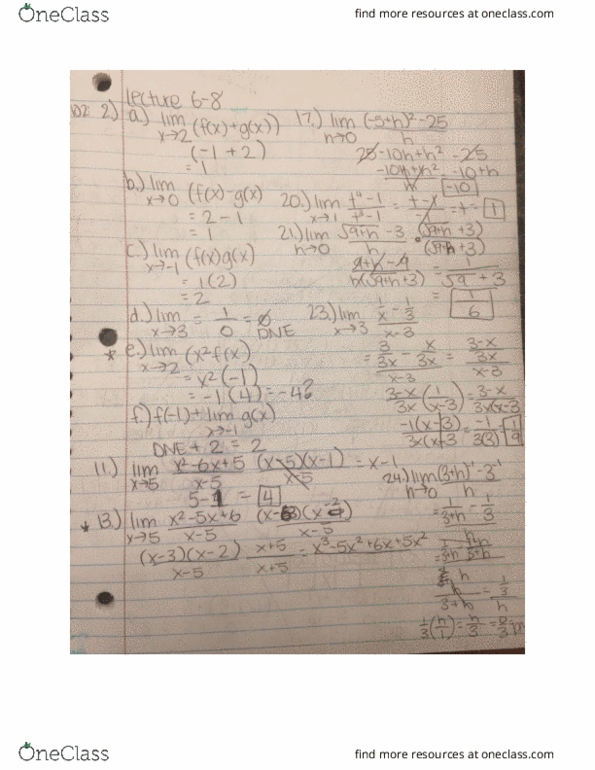 OneClass
find more resources at oneclass.com
lecture 6-8
2.) a.) lim x→2 (f(x)+g(x))
(-1+2)
= 1
b.) lim x→0 (f(x)-g(x)
= 2-1
= 1
c.) lim x→-1 (f(x)g(x)
= 1(2)
= 2
d.) lim x→3 = 1/0 = ∅ DNE
* e.) lim x→2 (x²f(x)
= x²(-1)
= -1(4) = -4?
f.) f(-1)+lim x→-1 g(x)
DNE + 2 = 2
11.) lim x→5 x²-6x+5 / x-5 (x-5)(x-1) / x-5 = x-1
5-1 = 4
* 13.) lim x→5 x²-5x+6 / x-5 (x-3)(x-2) / x-5
(x-3)(x-2) / x-5 x+5 / x+5 = x³-5x²+6x+5x²
17.) lim h→0 (-5+h)²-25 / h
25-10h+h²-25
-10h+h² / h -10+h
-10
20.) lim x→1 t⁴-1 / t³-1 = t = 1
21.) lim h→0 √9+h -3 / h • (√9+h +3) / (√9+h +3)
9+h-9 / h(√9+h+3) = 1 / √9 +3
= 1/6
23.) lim x→3 1/x - 1/3 / x-3
= 3/3x - x/3x / x-3 = 3-x/3x / x-3
3-x / 3x (1 / x-3) = 3-x / 3x(x-3
-1(x-3) / 3x(x-3 = -1 / 3(3) 1/9
24.) lim h→0 (3+h)⁻¹-3⁻¹ / h
= 1/3+h - 1/3
h
3+h = 1/3 / h
1/3 (h/1) = h/3
OneClass
find more resources at oneclass.com